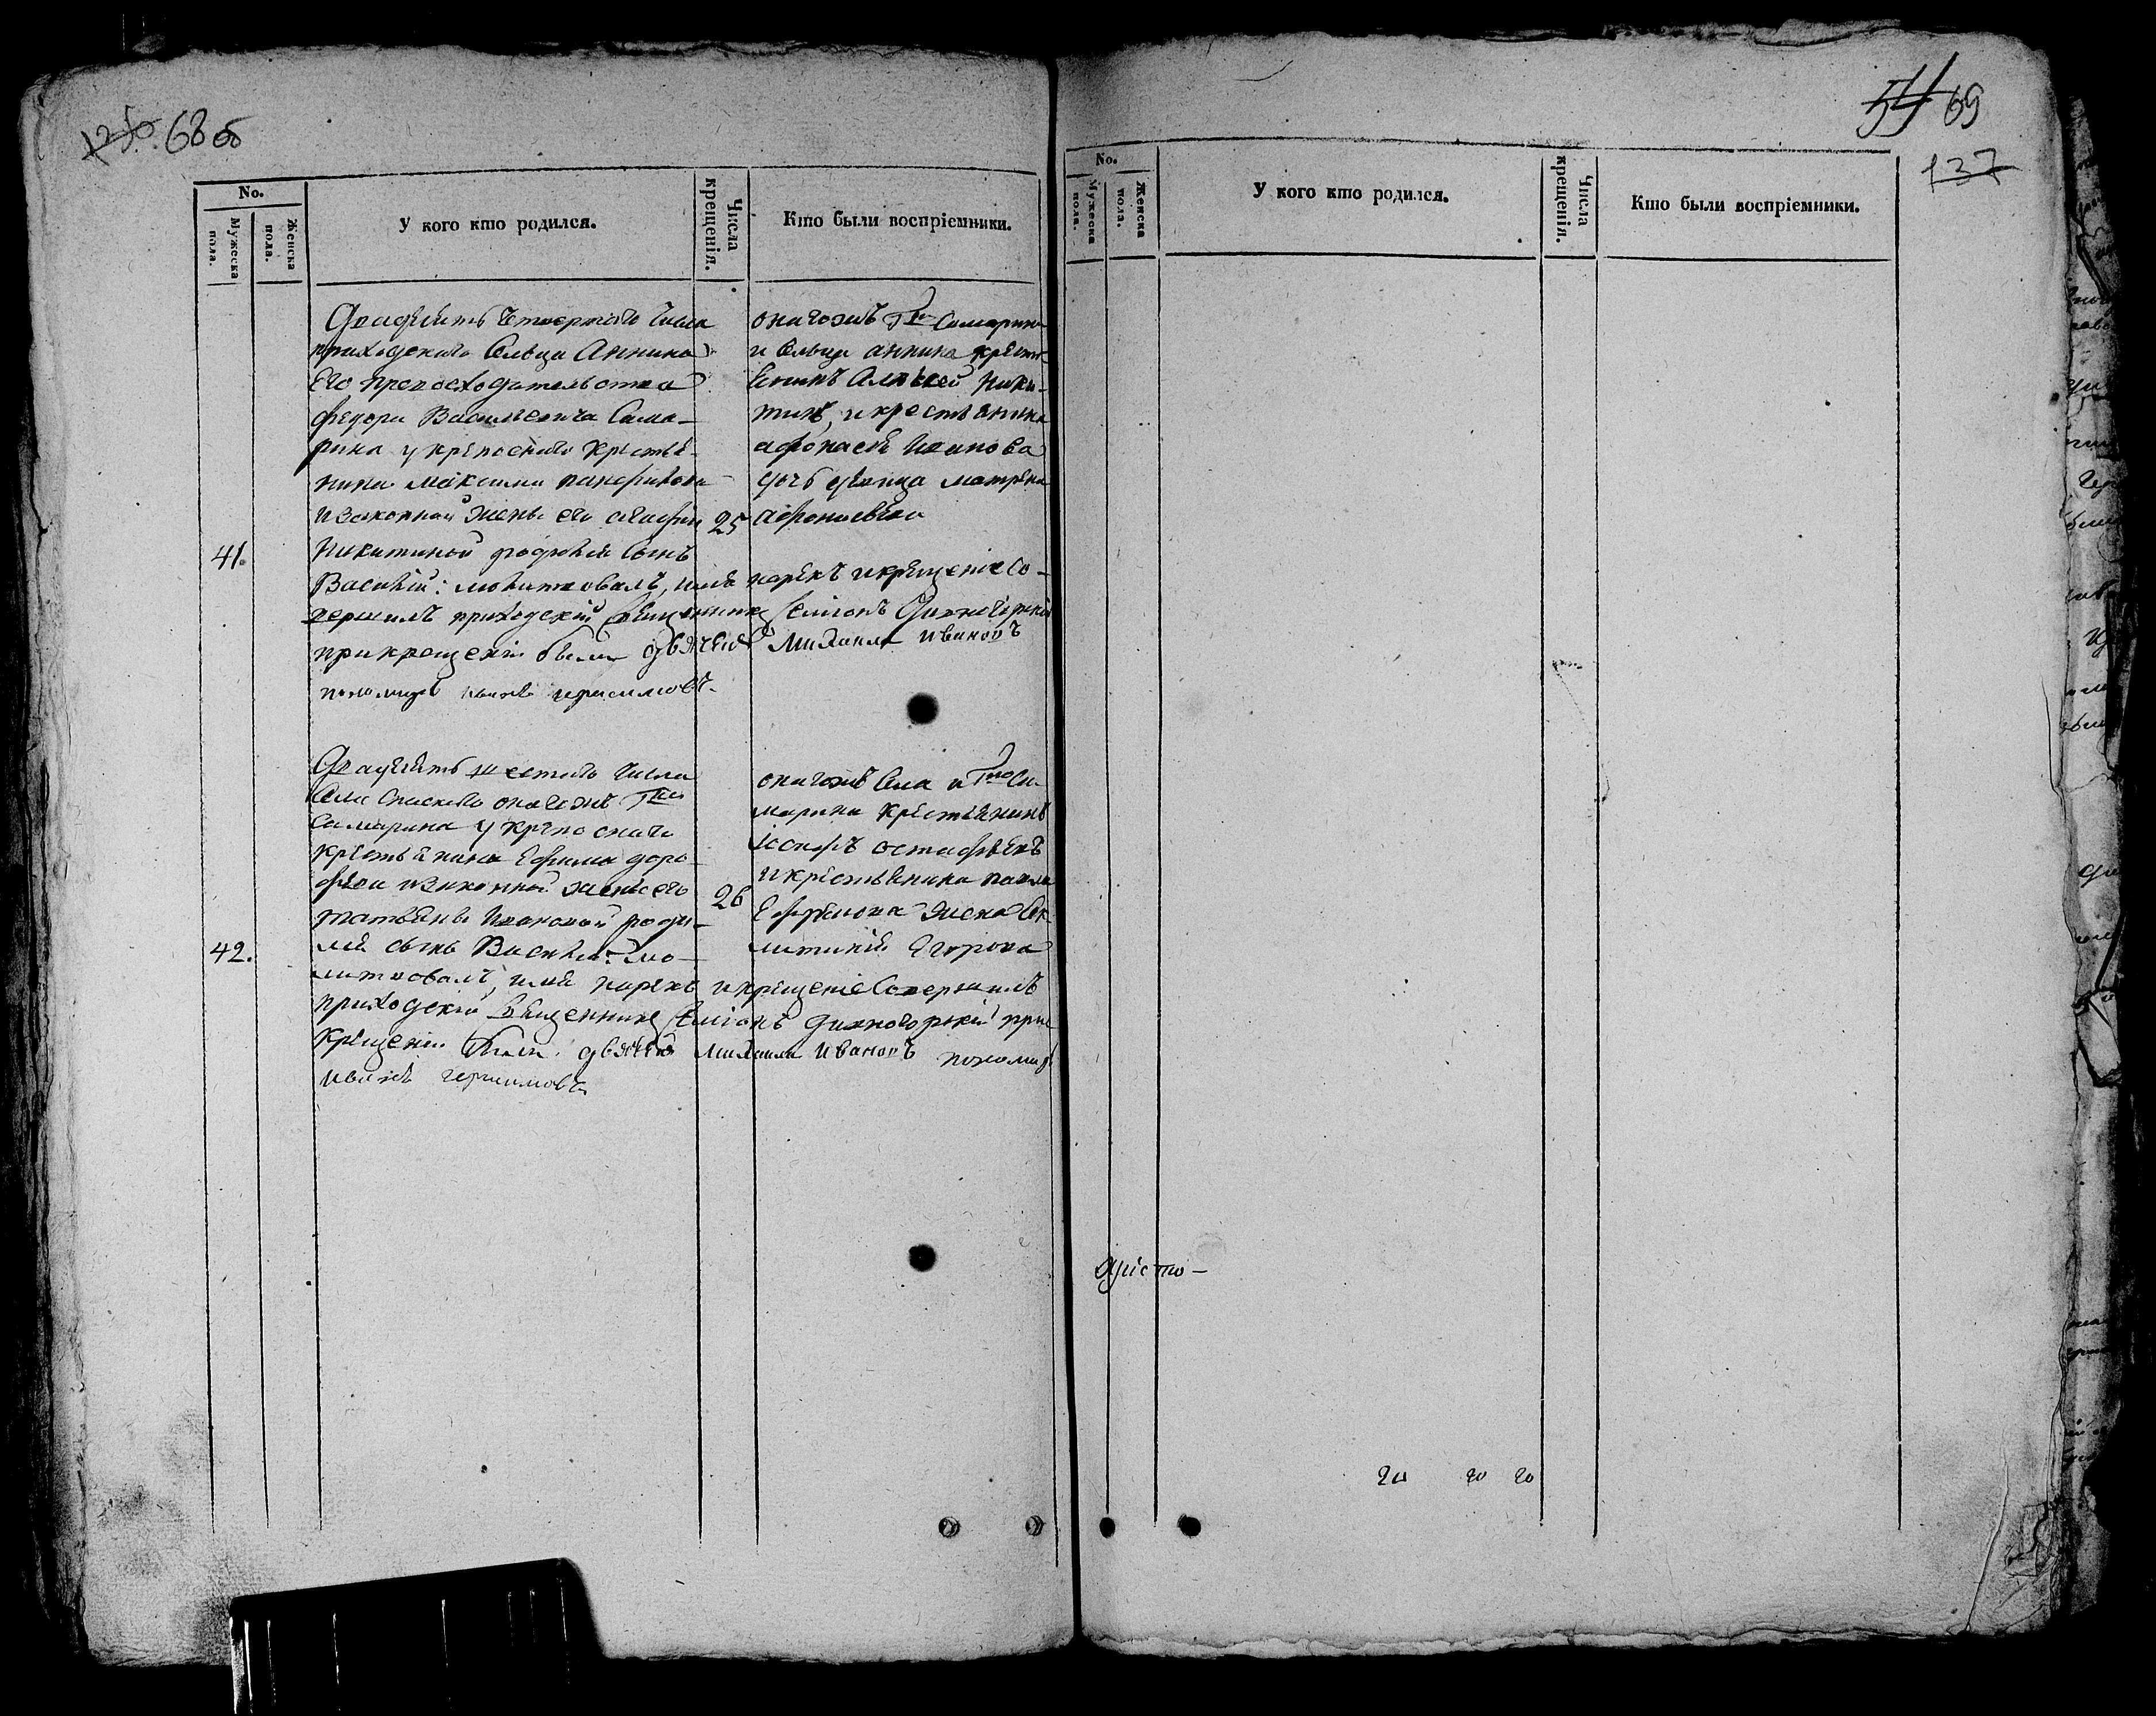 68 об
No.
Мужеска пола.
Женска пола.
У кого кто родился.
Числа крещенія.
Кто были воспріемники.
Двадцить четвертаго числа
приходскаго Сельца Аннина
Его превосходительства
Федора Васильевича Сама-
рина у крепоснаго крестья-
нина максима
и законной жены его агафии
41.
Никитиной родился сынъ
Василий: молитвовалъ, имя нарекъ и крещение Со-
вершилъ приходский священникъ Симионъ
при крещении были дьячекъ Михаила ивановъ
пономарь иванъ герасимовъ.
25
онагожъ Гна Самарина
и сельца аннина кресть-
янинъ Алексей Ники-
тинъ, и крестьянина
афонасия Иванова
дочь девица матрена
афонасьева
Двадцить шестаго числа
села Спаскаго онагожъ Гна
Самарина у крепоснаго
крестьянина Ефима доро-
феева и законной жены его
татьяны Ивановой роди-
42.
лся сынъ Василий: мо-
литвовалъ, имя нарекъ и крещение Совершилъ
приходский священникъ Симионъ при
крещении были дьячекъ михаила ивановъ пономарь
иванъ герасимовъ
26
онагожъ села и Гна Са-
марина крестьянинъ
Иосифъ остафьевъ
и крестьянина павла
Ефремова жена
Егорова
54 69
137
No.
Мужеска пола.
Женска пола.
У кого кто родился.
Числа крещенія.
Кто были воспріемники.